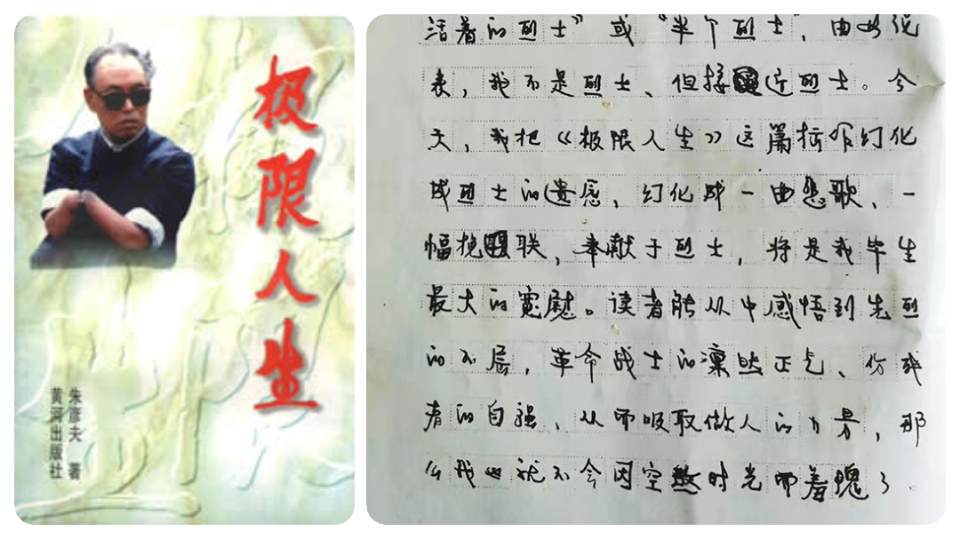 极限人生
朱彦夫 著
黄河出版社
活着的烈士”或“半个烈士”,由此说
表,我不是烈士、但接近烈士。今
天,我把《极限人生》这篇拙作幻化
成烈士的遗愿,幻化成一曲悲歌、一
幅挽联,奉献于烈士,将是我毕生
最大的宽慰。读者能从中感悟到先烈
的不屈,革命战士的凛然正气、伤残
者的自强、从而吸取做人的力量,那
么我也就不会因空数时光而羞愧了.